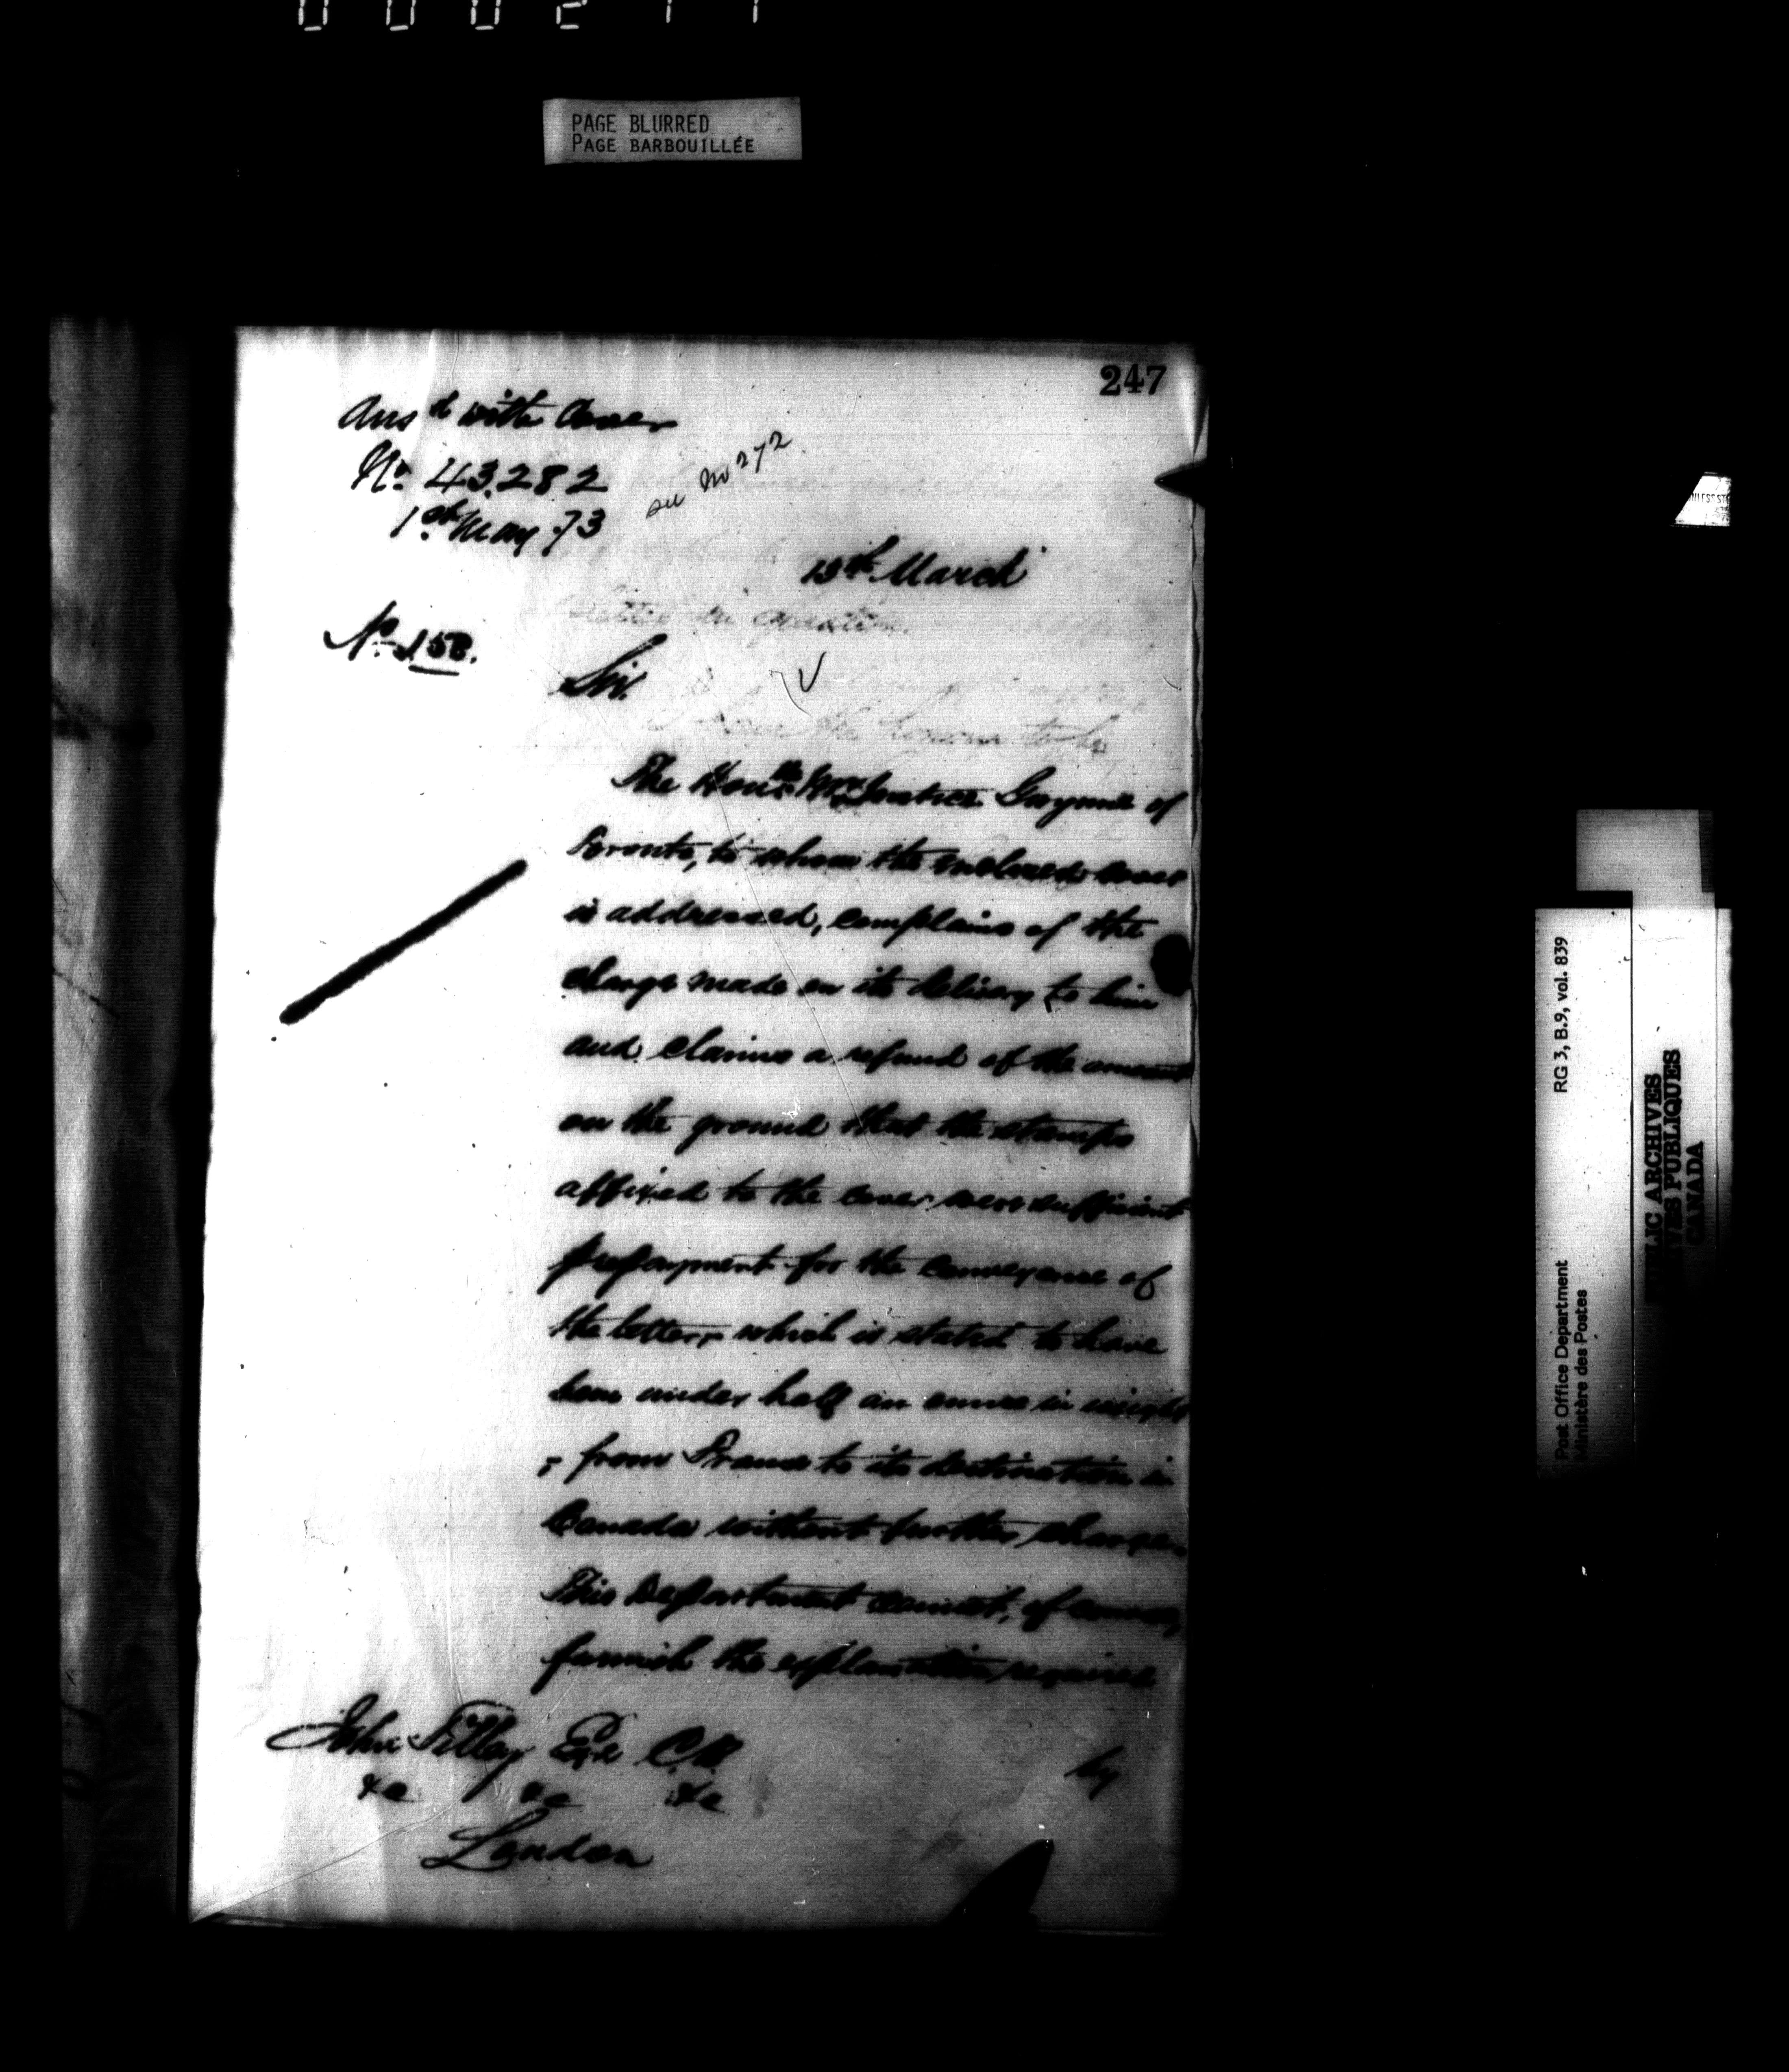 PAGE BLURRED
PAGE BARBOUILLÉE
247
Ansd with Cover
No. 43.282
1st May 73
see No 272
13th March
No. 158.
Sir.
The Honble Mr Justice Gwynne of
Toronto, to whom the enclosed cover
is addressed, complains of the
charge made on its delivery to him
and claims a refund of the amount
on the ground that the stamps
affixed to the cover were sufficient
prepayment for the conveyance of
the letter, - which is stated to have
been under half an ounce in weight
; from France to its destination in
Canada without further charge.
This Department cannot, of course,
furnish the explanation required
by
John Tilley Esqe C.B.
&c &c &c
London
RG 3, B.9, vol. 839
Post Office Department
Ministère des Postes
PUBLIC ARCHIVES
ARCHIVES PUBLIQUES
CANADA